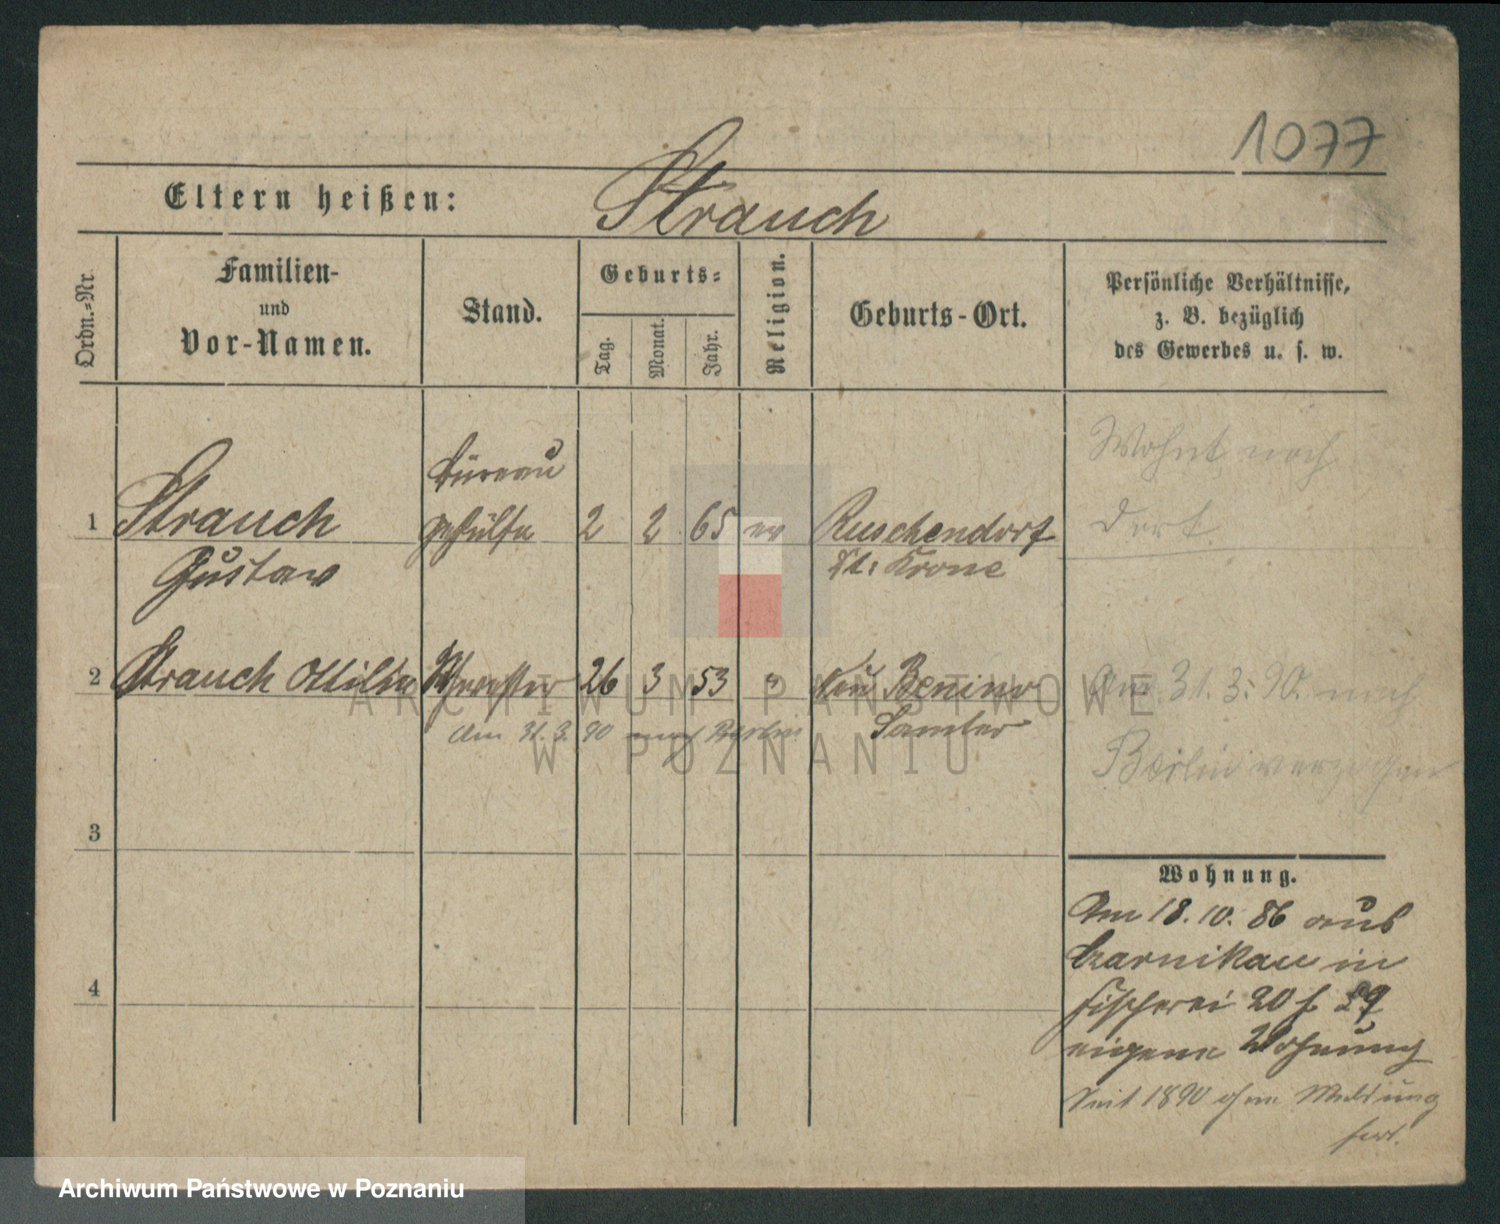 1077
Eltern heißen: Strauch
Ordn.-Nr.
Familien-
und
Vor-Namen.
Stand.
Geburts-
Tag.
Monat.
Jahr.
Religion.
Geburts-Ort.
Persönliche Verhältnisse,
z. B. bezüglich
des Gewerbes u. s. w.
Büreau
1 Strauch gehülfe 2 2 65 ev Ruschendorf
Gustav Dt. Krone
Wohnt noch
dort.
2 Strauch Ottilie 26 3 53 " Neu
Samter
Am 31.3.90 nach Berlin
Am 31.3.90. nach
Berlin verzogen
3
4
Wohnung.
Am 18.10.86 aus
Czarnikau in
Fischerei 20
eigene Wohnung
Seit 1890 ohne Meldung
fort.
ARCHIWUM PAŃSTWOWE
W POZNANIU
Archiwum Państwowe w Poznaniu